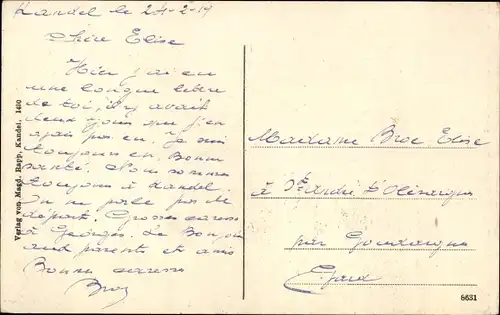 Kandel le 24-2-19
Chère Elise
Hier j'ai eu
une longue lettre
de toi, il y avait
deux jours que j'en
avais pas eu. Je suis
toujours en Bonne
santé. Nous sommes
toujours à Kandel.
On ne parle pas de
départ. Grosses caresses
à Georges. Le Bonjour
aux parents et amis
Bonnes caresses
Broc
Madame Broc Elise
à St André d'Olérargues
par Goudargues
Gard
Verlag von Magd. Rapp, Kandel. 1490
6631